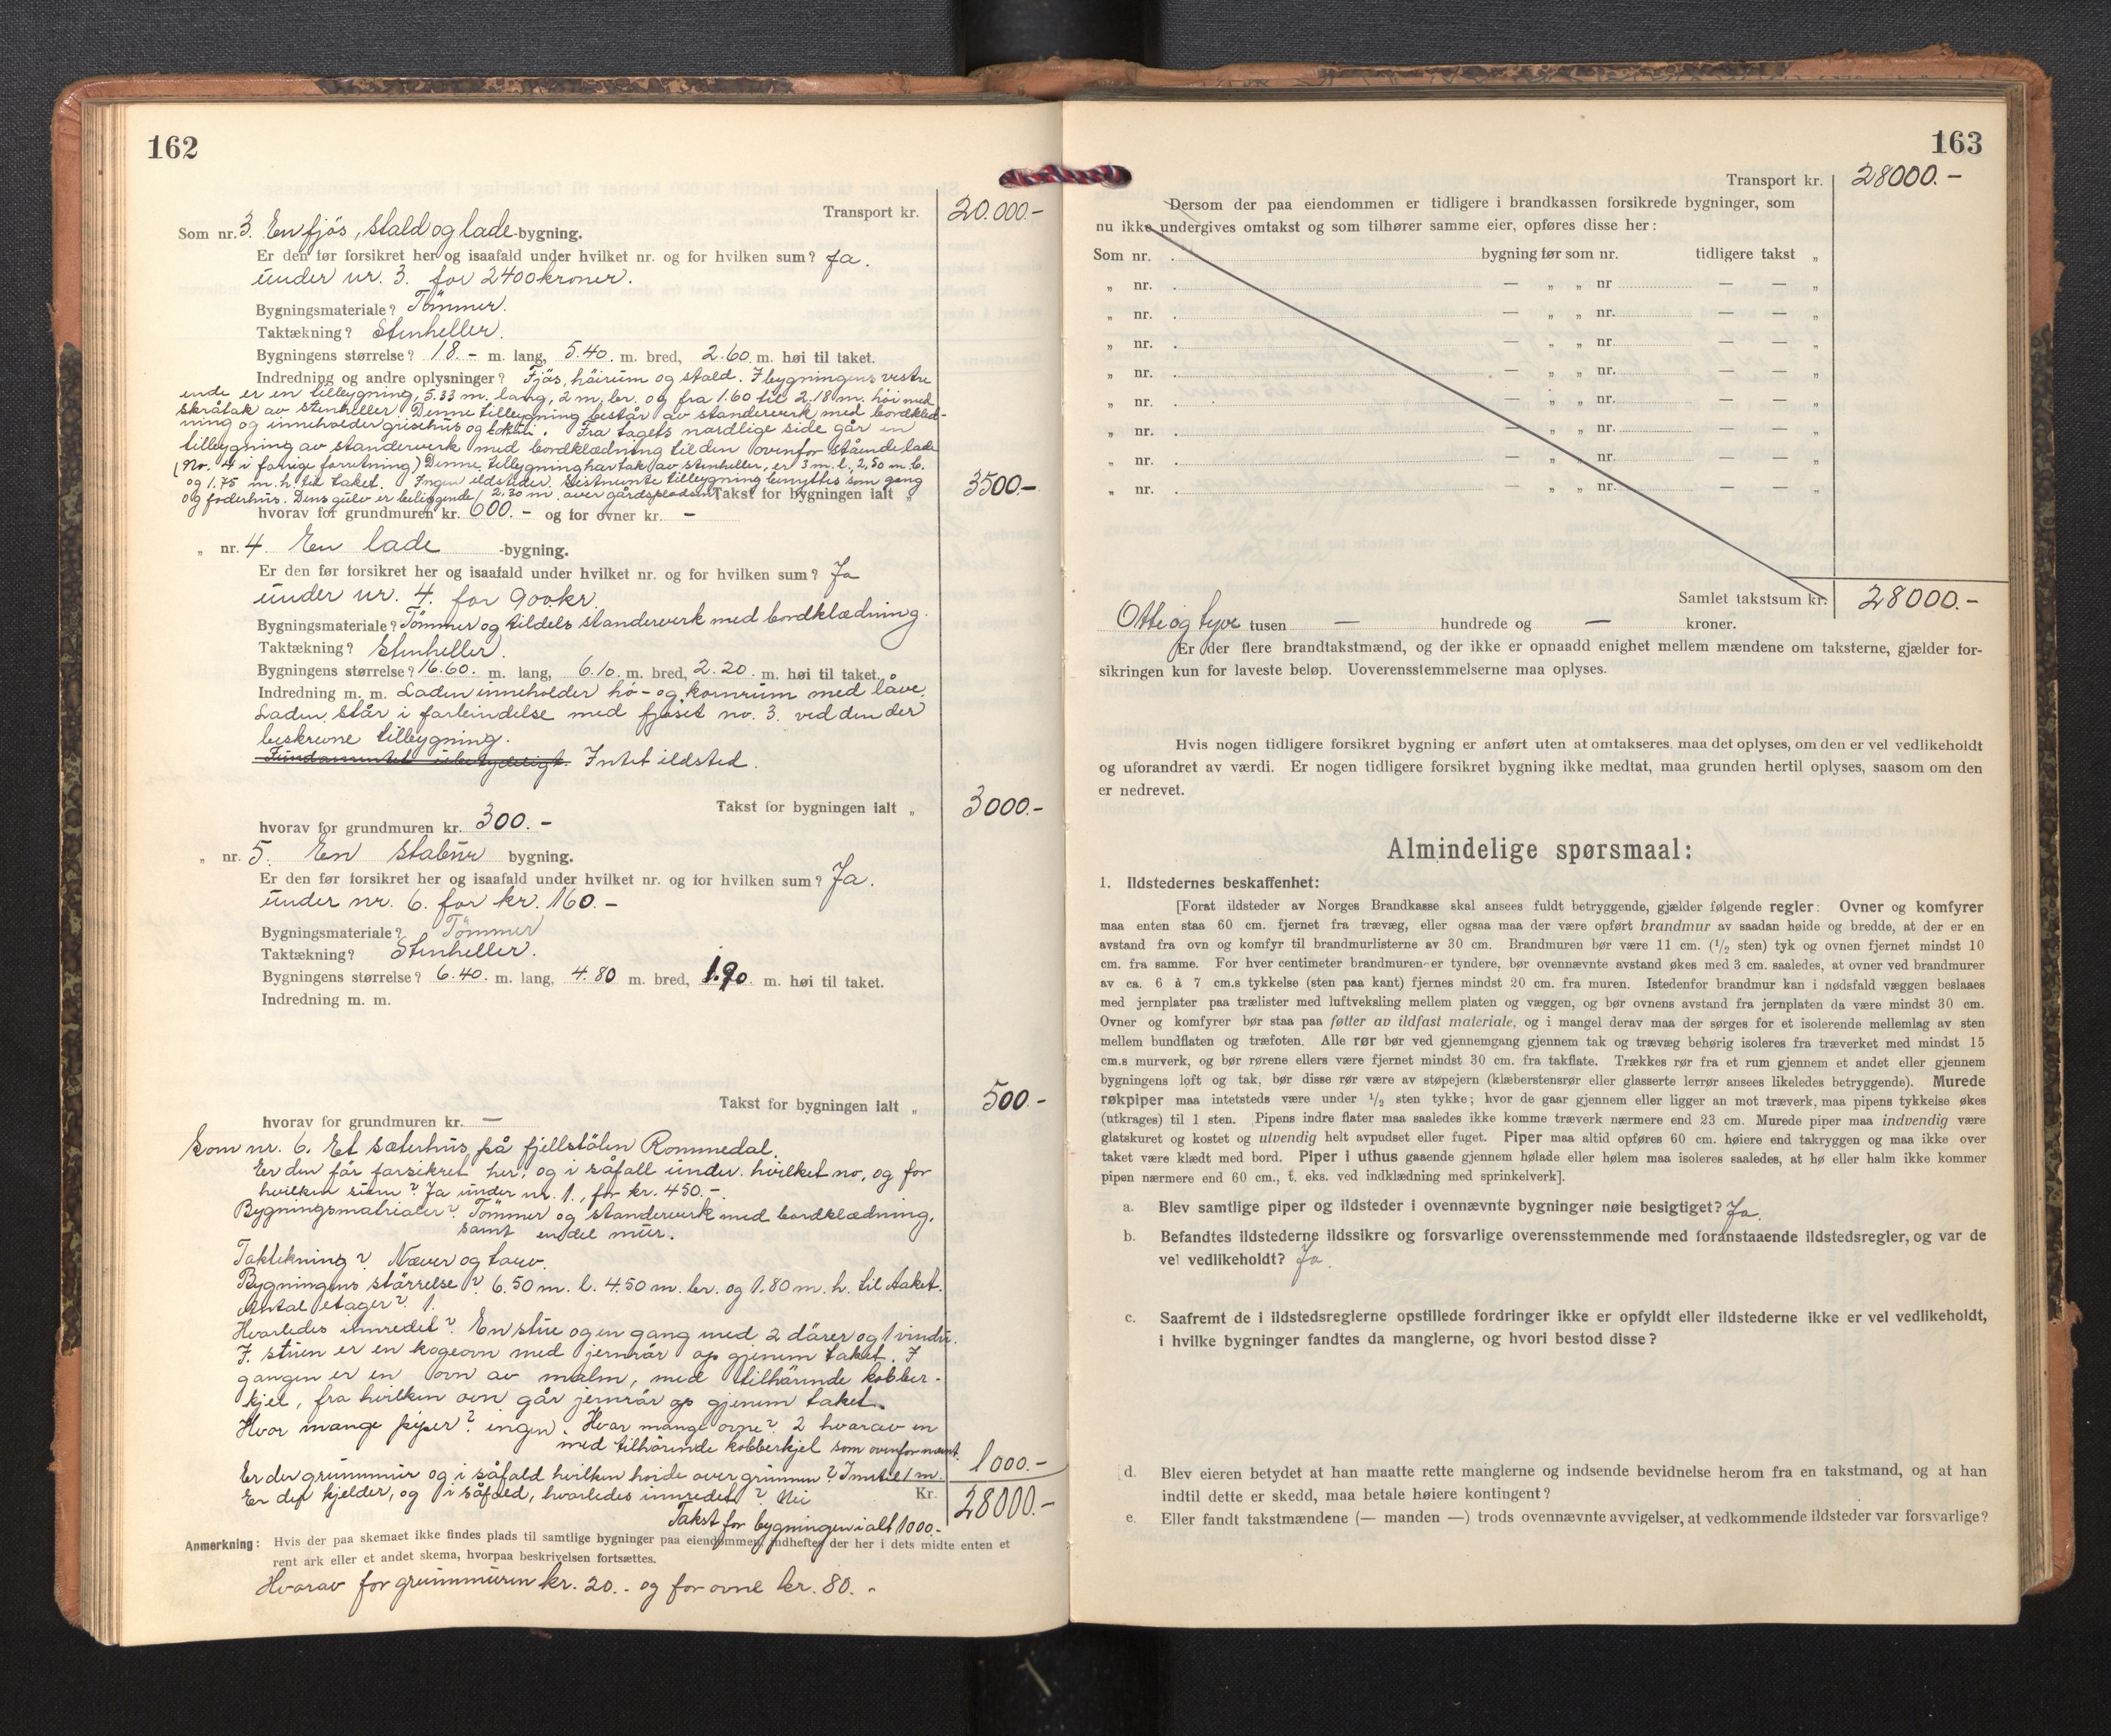 162
Transport kr. 20.000.-
Som nr. 3. En fjös, stald og lade-bygning.
Er den før forsikret her og isaafald under hvilket nr. og for hvilken sum? Ja.
under nr. 3. for 2400 kroner.
Bygningsmateriale? Tömmer.
Taktækning? Stenheller.
Bygningens størrelse? 18.- m. lang, 5.40. m. bred, 2.60. m. høi til taket.
Indredning og andre oplysninger? Fjös, höirum og stald. I bygningens vestre
ende er en tilbygning, 5.33 m. lang, 2 m. br. og fra 1.60 til 2.18 m. höi med
skråtak av stenheller. Denne tilbygning består av standerverk med bordklæd-
ning og inneholder grisehus og lokum. Fra tagets nordlige side går en
tilbygning av standerverk med bordklædning til den ovenfor stående lade
(No. 4 i forrige forretning) Denne tilbygning har tak av stenheller, er 3 m. l., 2,50 m. b.
og 1.75 m. h. til taket. Ingen ildsteder. Sistnevnte tilbygning benyttes som gang
og foderhus. Dens gulv er beliggende 2.30 m. over gårdspladsen Takst for bygningen ialt „ 3500.-
hvorav for grundmuren kr. 600.- og for ovner kr. -
„ nr. 4. En lade -bygning.
Er den før forsikret her og isaafald under hvilket nr. og for hvilken sum? Ja
under nr. 4. for 900 kr.
Bygningsmateriale? Tömmer og tildels standerverk med bordklædning.
Taktækning? Stenheller.
Bygningens størrelse? 16.60. m. lang, 6.10. m. bred, 2.20. m. høi til taket.
Indredning m. m. Laden inneholder hö- og kornrum med låve.
Laden står i forbindelse med fjöset no. 3. ved den der
beskrevne tilbygning.
Fundamentet ubetydeligt. Intet ildsted.
Takst for bygningen ialt „ 3000.-
hvorav for grundmuren kr. 300.-
„ nr. 5. En stabur bygning.
Er den før forsikret her og isaafald under hvilket nr. og for hvilken sum? Ja.
under nr. 6. for kr. 160.-
Bygningsmateriale? Tömmer
Taktækning? Stenheller.
Bygningens størrelse? 6.40. m. lang, 4.80 m. bred, 1.90. m. høi til taket.
Indredning m. m.
Takst for bygningen ialt „ 500.-
hvorav for grundmuren kr. —
Som nr. 6. Et sæterhus på fjellstölen Rommedal.
Er den för forsikret her, og i såfall under hvilket no, og for
hvilken sum? Ja under nr. 1., for kr. 450.-.
Bygningsmatrialer? Tömmer og standerverk med bordklædning,
samt endel mur.
Taktekning? Næver og torv.
Bygningens störrelse? 6.50 m. l. 4.50 m. br. og 1.80 m. h. til taket.
Antal etager? 1.
Hvorledes innredet? En stue og en gang med 2 dörer og 1 vindu.
I stuen er en kogeovn med jernrör op gjenem taket. I
gangen er en ovn av malm, med tilhörende kobber-
kjel, fra hvilken ovn går jernrör op gjenem taket.
Hvor mange piper? ingen. Hvor mange ovne? 2 hvorav en
med tilhörende kobberkjel som ovenfor nevnt. 1000.-
Er der grunnmur og i såfald hvilken höide over grunnen? Inntil 1 m.
Er der kjelder, og i såfald, hvorledes innredet? Nei Kr. 28000.-
Takst for bygningen ialt 1000.-
Anmerkning: Hvis der paa skemaet ikke findes plads til samtlige bygninger paa eiendommen, indheftes der her i dets midte enten et
rent ark eller et andet skema, hvorpaa beskrivelsen fortsættes.
Hvorav for grunnmuren kr. 20.- og for ovne kr. 80.-
163
Transport kr. 28000.-
Dersom der paa eiendommen er tidligere i brandkassen forsikrede bygninger, som
nu ikke undergives omtakst og som tilhører samme eier, opføres disse her:
Som nr. . bygning før som nr. tidligere takst „
„ nr. . — „ „ nr — — „
„ nr. . — „ „ nr. — — „
„ nr. . — „ „ nr. — — „
„ nr. . — „ „ nr. — — „
„ nr. . — „ „ nr. — — „
„ nr. . — „ „ nr. — — „
„ nr. . — „ „ nr. — — „
„ nr. . — „ „ nr. — — „
Samlet takstsum kr. 28000.-
Otte og tyve tusen — hundrede og — kroner.
Er der flere brandtakstmænd, og der ikke er opnaadd enighet mellem mændene om taksterne, gjælder for-
sikringen kun for laveste beløp. Uoverensstemmelserne maa oplyses.
Hvis nogen tidligere forsikret bygning er anført uten at omtakseres, maa det oplyses, om den er vel vedlikeholdt
og uforandret av værdi. Er nogen tidligere forsikret bygning ikke medtat, maa grunden hertil oplyses, saasom om den
er nedrevet.
Almindelige spørsmaal:
1. Ildstedernes beskaffenhet:
[Forat ildsteder av Norges Brandkasse skal ansees fuldt betryggende, gjælder følgende regler: Ovner og komfyrer
maa enten staa 60 cm. fjernet fra trævæg, eller ogsaa maa der være opført brandmur av saadan høide og bredde, at der er en
avstand fra ovn og komfyr til brandmurlisterne av 30 cm. Brandmuren bør være 11 cm. (1/2 sten) tyk og ovnen fjernet mindst 10
cm. fra samme. For hver centimeter brandmuren er tyndere, bør ovennævnte avstand økes med 3 cm. saaledes, at ovner ved brandmurer
av ca. 6 à 7 cm.s tykkelse (sten paa kant) fjernes mindst 20 cm. fra muren. Istedenfor brandmur kan i nødsfald væggen beslaaes
med jernplater paa trælister med luftveksling mellem platen og væggen, og bør ovnens avstand fra jernplaten da være mindst 30 cm.
Ovner og komfyrer bør staa paa føtter av ildfast materiale, og i mangel derav maa der sørges for et isolerende mellemlag av sten
mellem bundflaten og træfoten. Alle rør bør ved gjennemgang gjennem tak og trævæg behørig isoleres fra træverket med mindst 15
cm.s murverk, og bør rørene ellers være fjernet mindst 30 cm. fra takflate. Trækkes rør fra et rum gjennem et andet eller gjennem
bygningens loft og tak, bør disse rør være av støpejern (klæberstensrør eller glasserte lerrør ansees likeledes betryggende). Murede
røkpiper maa intetsteds være under 1/2 sten tykke; hvor de gaar gjennem eller ligger an mot træverk, maa pipens tykkelse økes
(utkrages) til 1 sten. Pipens indre flater maa saaledes ikke komme træverk nærmere end 23 cm. Murede piper maa indvendig være
glatskuret og kostet og utvendig helt avpudset eller fuget. Piper maa altid opføres 60 cm. høiere end takryggen og maa ikke over
taket være klædt med bord. Piper i uthus gaaende gjennem hølade eller hølem maa isoleres saaledes, at hø eller halm ikke kommer
pipen nærmere end 60 cm., f. eks. ved indklædning med sprinkelverk].
a. Blev samtlige piper og ildsteder i ovennævnte bygninger nøie besigtiget? Ja.
b. Befandtes ildstederne ildssikre og forsvarlige overensstemmende med foranstaaende ildstedsregler, og var de
vel vedlikeholdt? Ja.
c. Saafremt de i ildstedsreglerne opstillede fordringer ikke er opfyldt eller ildstederne ikke er vel vedlikeholdt,
i hvilke bygninger fandtes da manglerne, og hvori bestod disse?
d. Blev eieren betydet at han maatte rette manglerne og indsende bevidnelse herom fra en takstmand, og at han
indtil dette er skedd, maa betale høiere kontingent?
e. Eller fandt takstmændene (— manden —) trods ovennævnte avvigelser, at vedkommende ildsteder var forsvarlige?